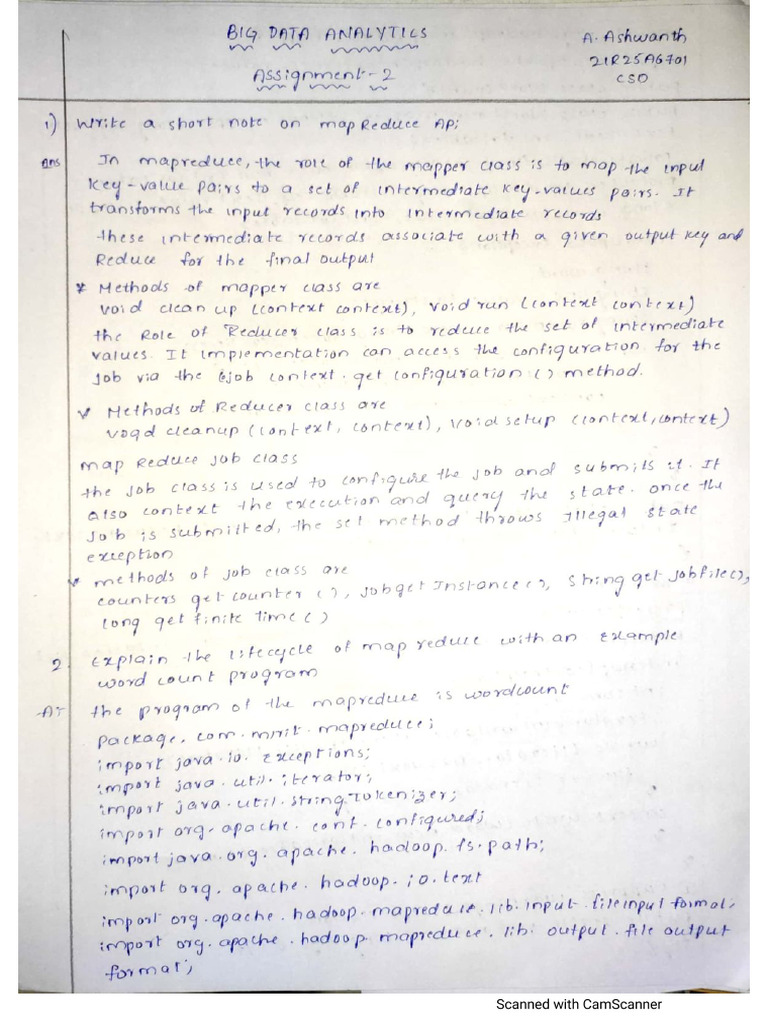 BIG DATA ANALYTICS
A. Ashwanth
21R25A6701
CSD
Assignment-2
1) Write a short note on mapReduce AP;
Ans In mapreduce, the role of the mapper class is to map the input
key-value pairs to a set of intermediate key-values pairs. It
transforms the input records into intermediate records
these intermediate records associate with a given output key and
Reduce for the final output
* Methods of mapper class are
void clean up (context context), void run (context context)
the Role of Reducer class is to reduce the set of intermediate
values. It implementation can access the configuration for the
job via the job context. get configuration () method.
Methods of Reducer class are
void cleanup (context, context), void setup (context, context)
map Reduce job class
the job class is used to configure the job and submits it. It
also context the execution and query the state. once the
job is submitted, the set method throws Illegal state
exception
methods of job class are
counters get counter (), job get Instance (), string get jobfile (),
long get finite Time ()
2. Explain the lifecycle of map reduce with an Example
word count program
A: the program of the mapreduce is wordcount
package. com. mrit. mapreduce;
import java. io. Exceptions;
import java. util. iterator;
import java. util. string Tokenizer;
import org. apache. conf. configured;
import java. org. apache. hadoop. fs. path;
import org. apache. hadoop. io. text
import org. apache. hadoop. mapreduce. lib. input. file input format;
import org. apache. hadoop. mapreduce. lib. output. file output
format;
Scanned with CamScanner